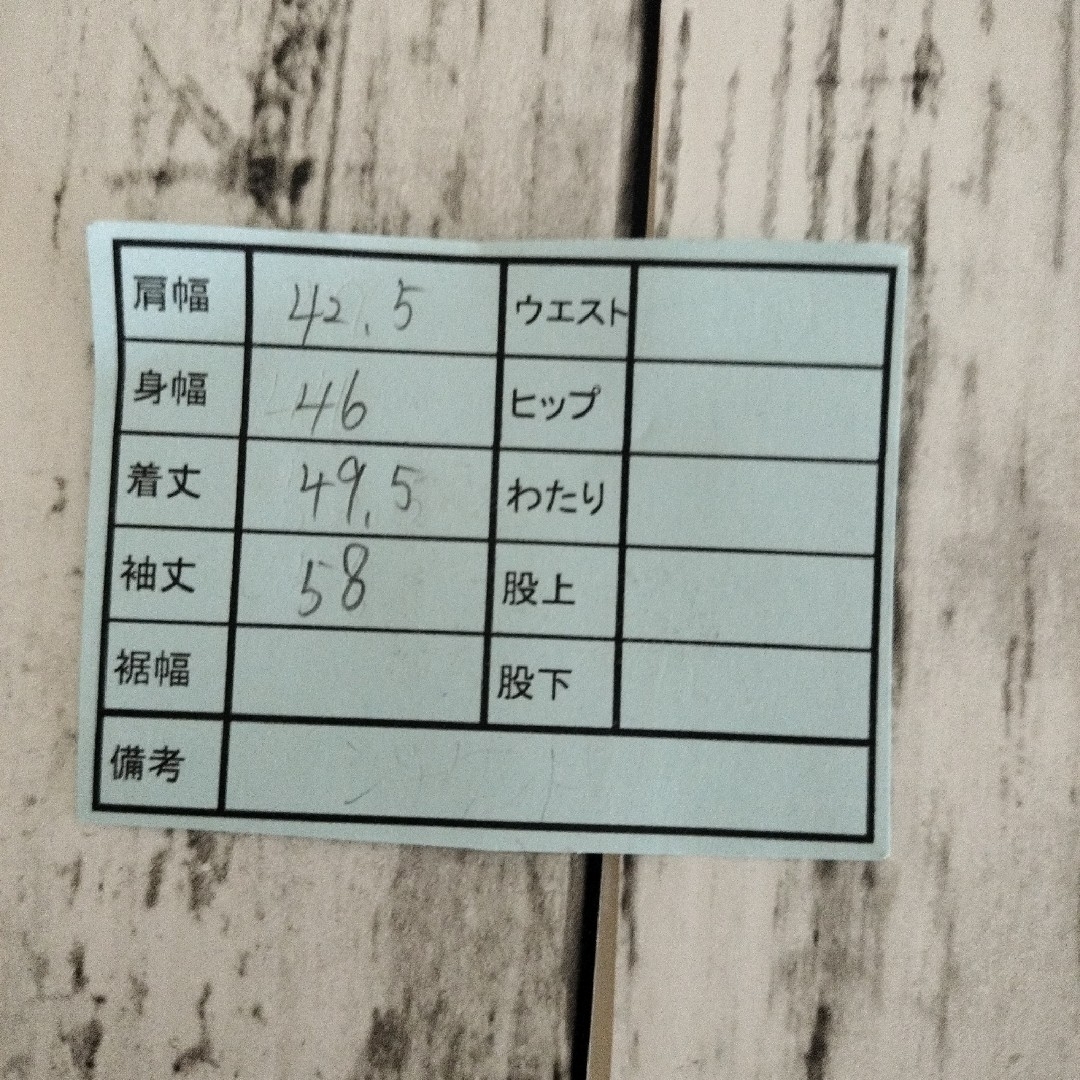 肩幅 42.5 ウエスト
身幅 46 ヒップ
着丈 49.5 わたり
袖丈 58 股上
裾幅 股下
備考